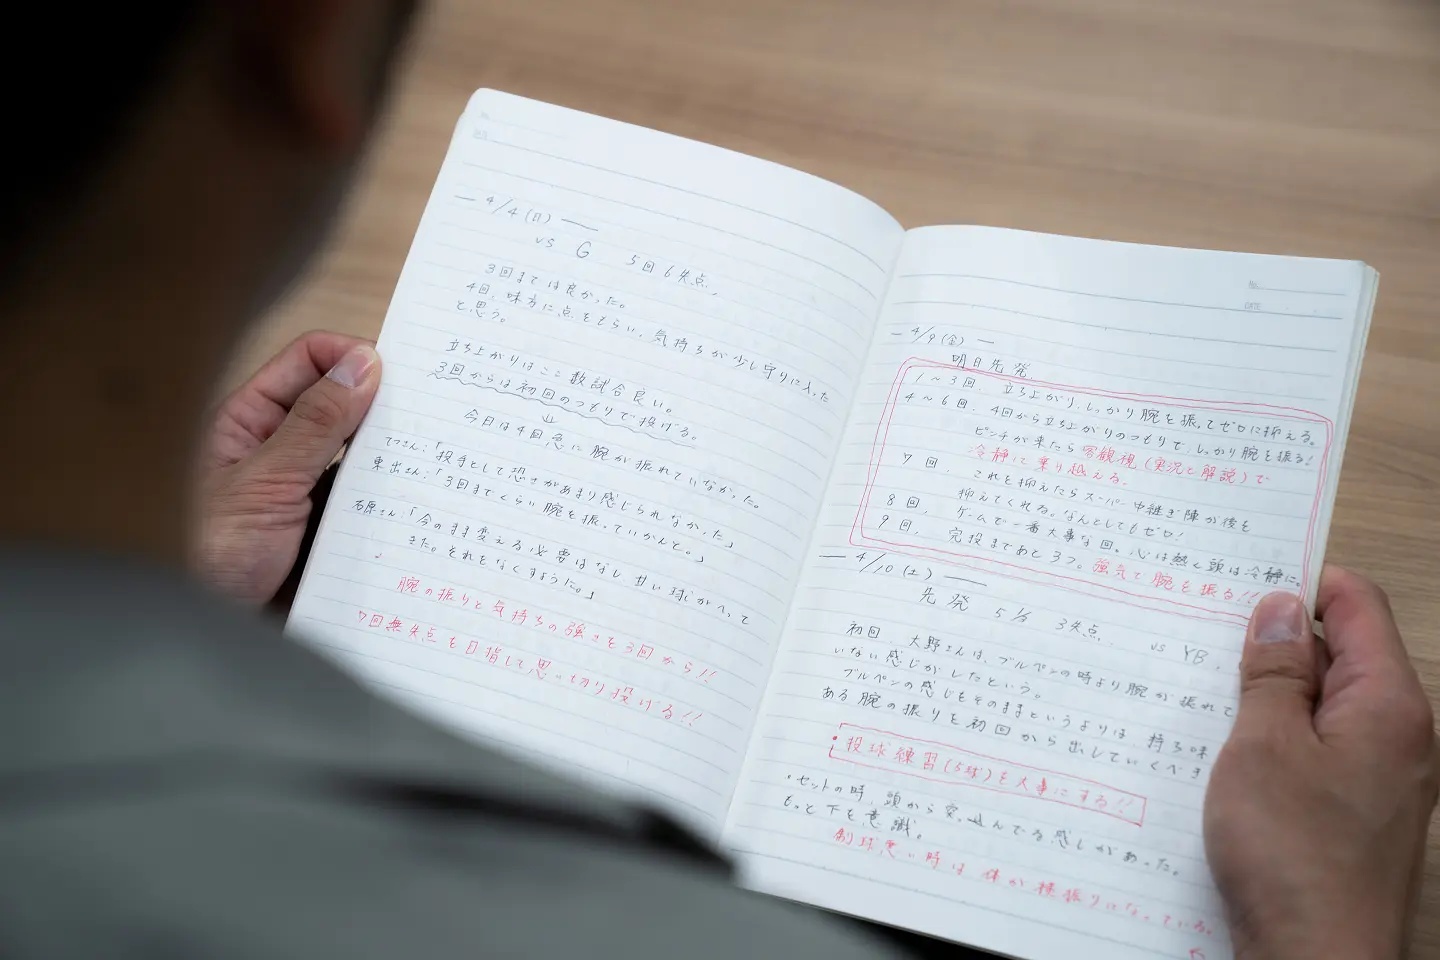 No.
DATE
— 4/4(日) —
vs G 5回6失点.
3回までは良かった。
4回、味方に点をもらい、気持ちが少し守りに入った
と思う。
立ち上がりはここ数試合良い。
3回からは初回のつもりで投げる。
↓
今日は4回急に腕が振れていなかった。
てつさん:「投手として恐さがあまり感じられなかった」
東出さん:「3回までくらい腕を振っていかんと。」
石原さん:「今のまま変える必要はなし 甘い球がへって
きた。それをなくすように。」
腕の振りと気持ちの強さを3回から!!
7回無失点を目指して思い切り投げる!!
No.
DATE
— 4/9(金) —
明日先発
1〜3回、立ち上がり、しっかり腕を振ってゼロに抑える。
4〜6回、4回から立ち上がりのつもりで、しっかり腕を振る!
ピンチが来たら客観視(実況と解説)で
冷静に乗り越える。
7回、これを抑えたらスーパー中継ぎ陣が後を
抑えてくれる。なんとしてもゼロ!
8回、ゲームで一番大事な回。心は熱く頭は冷静に。
9回、完投まであと3つ。強気で腕を振る!!
— 4/10(土) —
先発 5 1/3 3失点. vs YB.
初回、大野さんは、ブルペンの時より腕が振れて
いない感じがしたという。
ブルペンの感じもそのままというよりは、持ち味
ある腕の振りを初回から出していくべき
投球練習(5球)を大事にする!!
・セットの時、頭から突っ込んでる感じがあった。
もっと下を意識。
制球悪い時は体が横振りになっている。